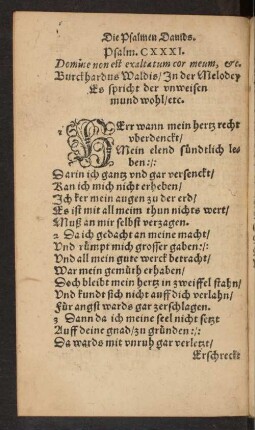 Die Psalmen Dauids.
Psalm. CXXXI.
Domine non est exaltatum cor meum, &c.
Burckhardus Waldis/ In der Melodey
Es spricht der vnweisen
mund wohl/ etc.
HErr wann mein hertz recht
vberdenckt/
Mein elend sündtlich les
ben :/:
Darin ich gantz vnd gar versenckt/
Kan ich mich nicht erheben/
Ich ker mein augen zu der erd/
Es ist mit all meim thun nichts wert/
Muß an mir selbst verzagen.
2 Da ich gedacht an meine macht/
Vnd rümpt mich grosser gaben :/:
Vnd all mein gute werck betracht/
War mein gemüth erhaben/
Doch bleibt mein hertz in zweiffel stahn/
Vnd kundt sich nicht auff dich verlahn/
Für angst wards gar zerschlagen.
3 Dann da ich meine seel nicht setzt
Auff deine gnad/ zu gründen :/:
Da wards mit vnruh gar verletzt/
Erschreckt